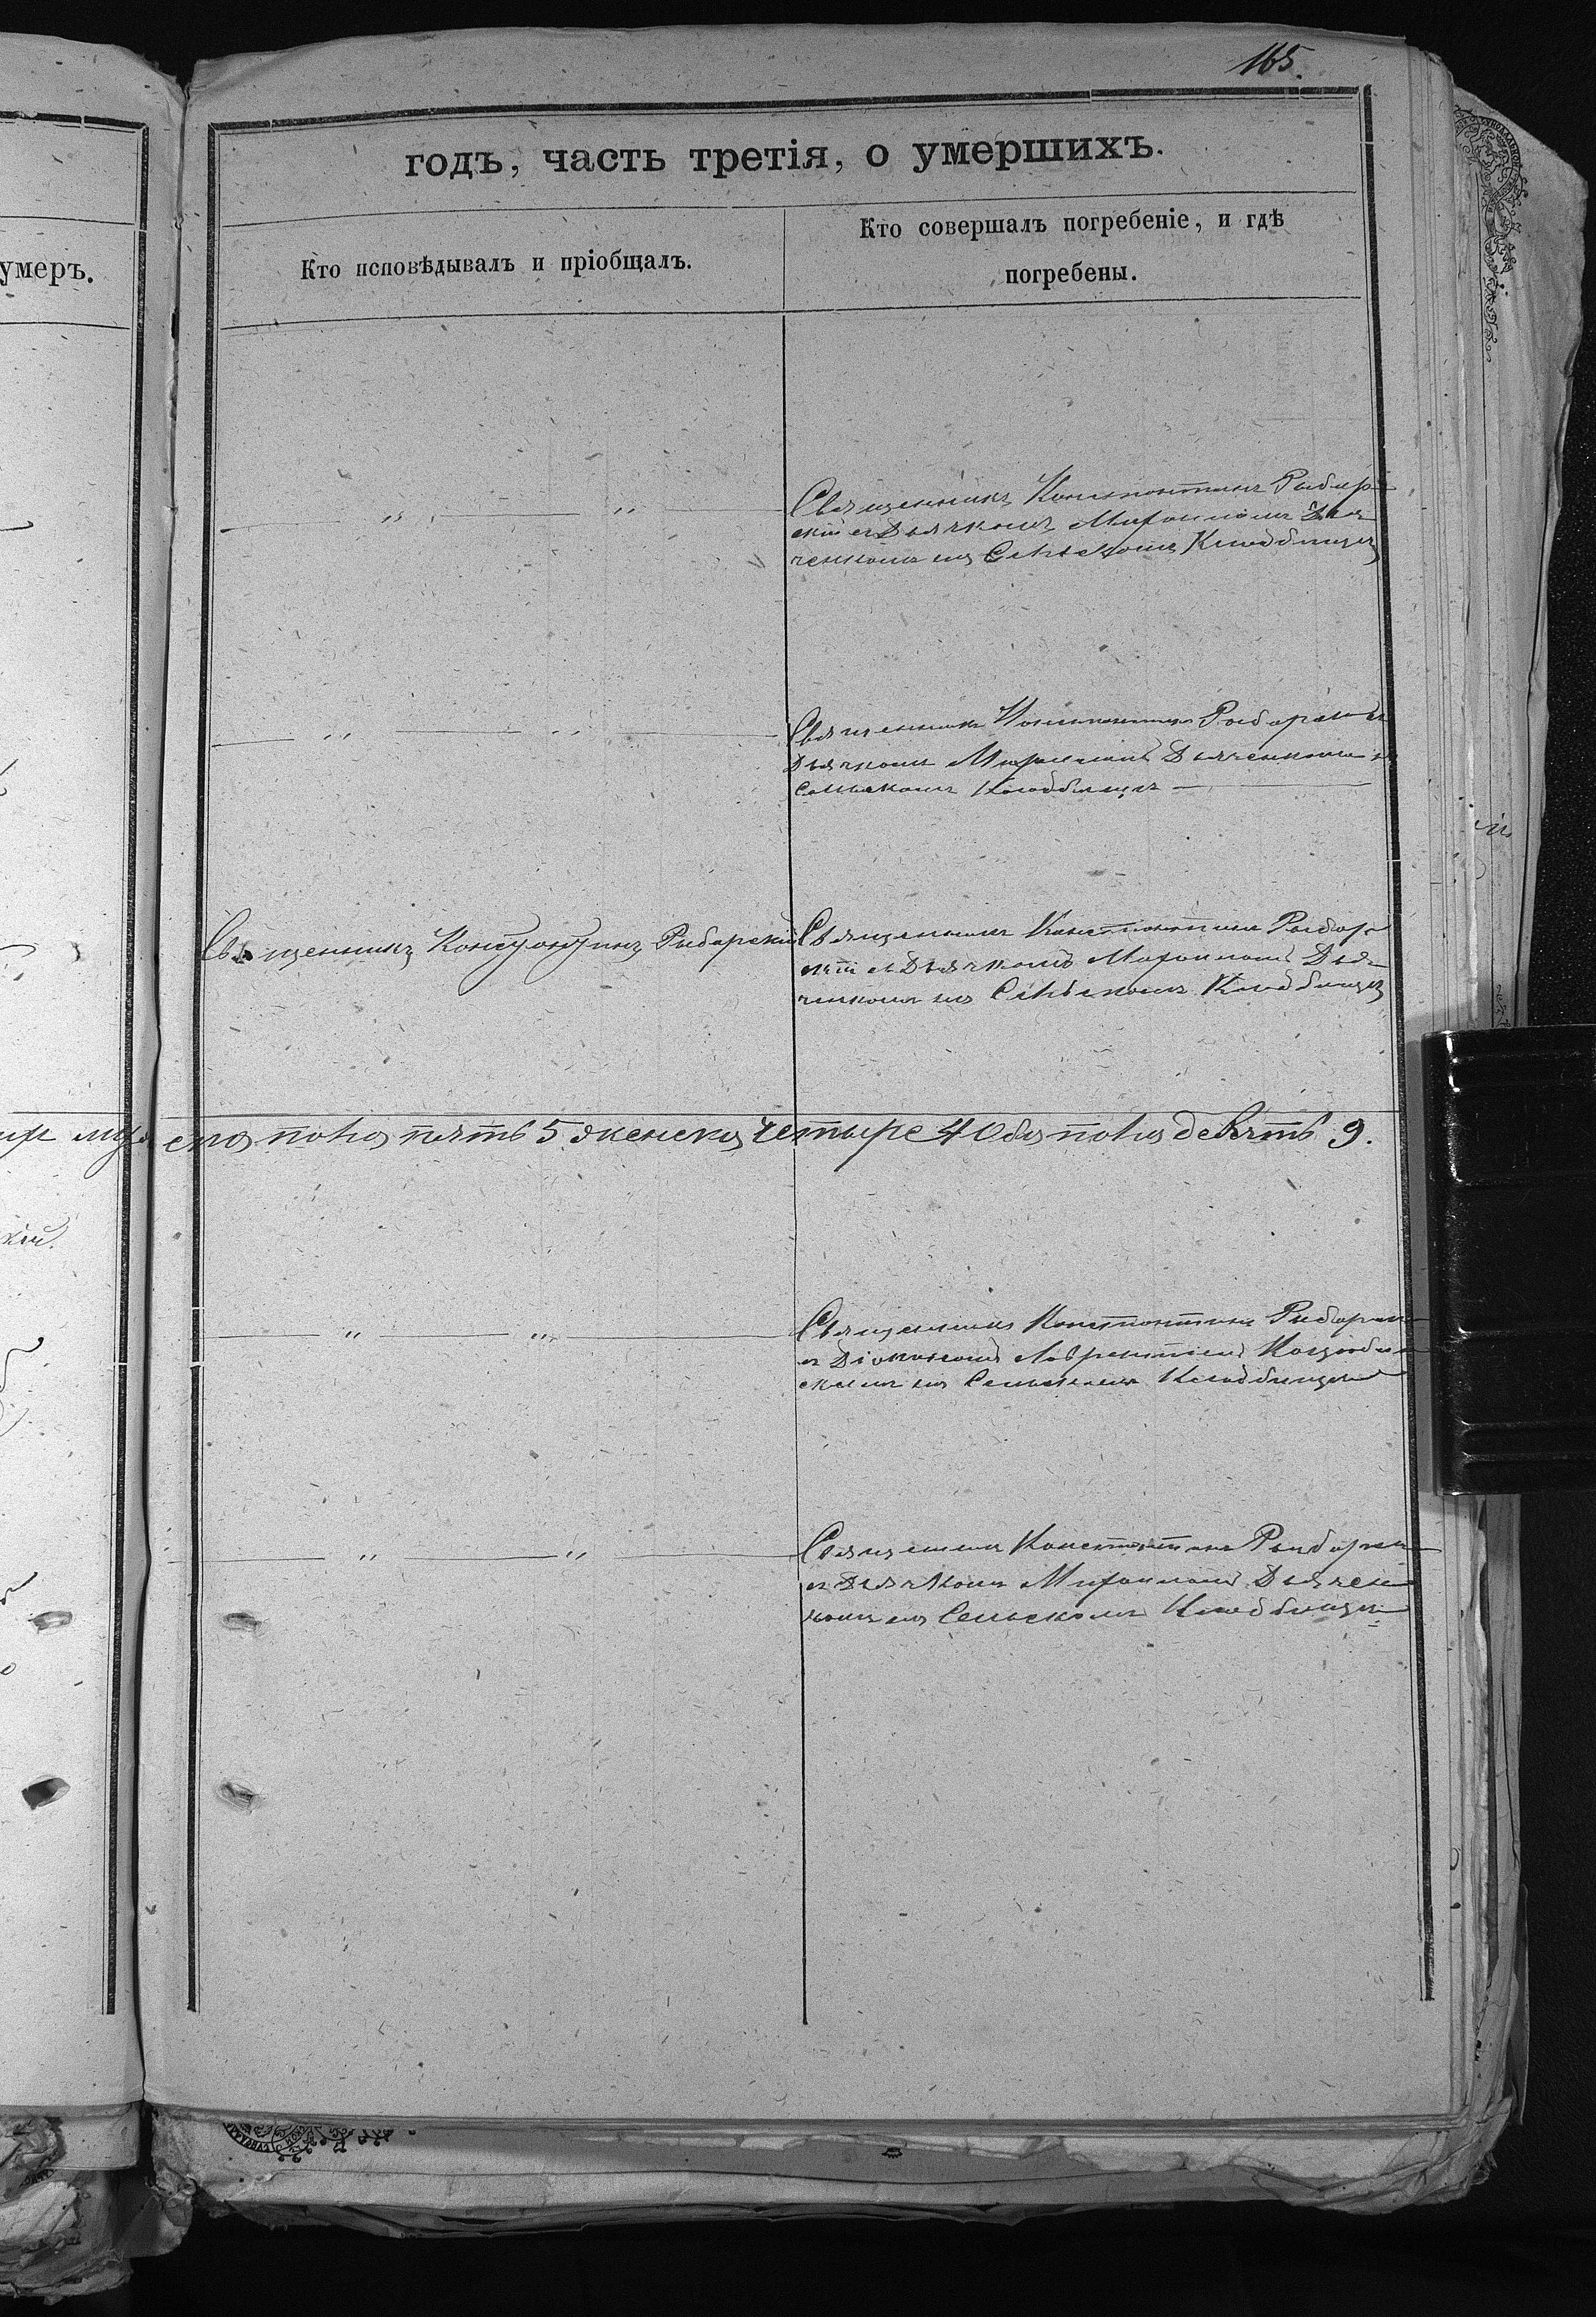 165.
годъ, часть третія, о умершихъ.
умеръ.
Кто исповѣдывалъ и пріобщалъ.
Кто совершалъ погребеніе, и гдѣ
погребены.
Священникъ Константинъ Рыбар
скій съ Дьячкомъ Дья
ченкомъ на Сельскомъ Кладбищѣ
Священникъ Константинъ
Дьячкомъ Дьяченкомъ на
Сельскомъ Кладбищѣ
Священникъ Константинъ Рыбарскій
Священникъ Константинъ Рыбар
скій съ Дьячкомъ Дья
ченкомъ на Сельскомъ Кладбищѣ
муже ска пола пять 5 женска четыре 4 Обоя пола девять 9.
кій.
Священникъ Константинъ
съ Діакономъ Лаврентіемъ
скимъ на Сельскомъ Кладбищѣ
Священникъ Константинъ
съ Дьячкомъ Дьячен
комъ на Сельскомъ Кладбищѣ